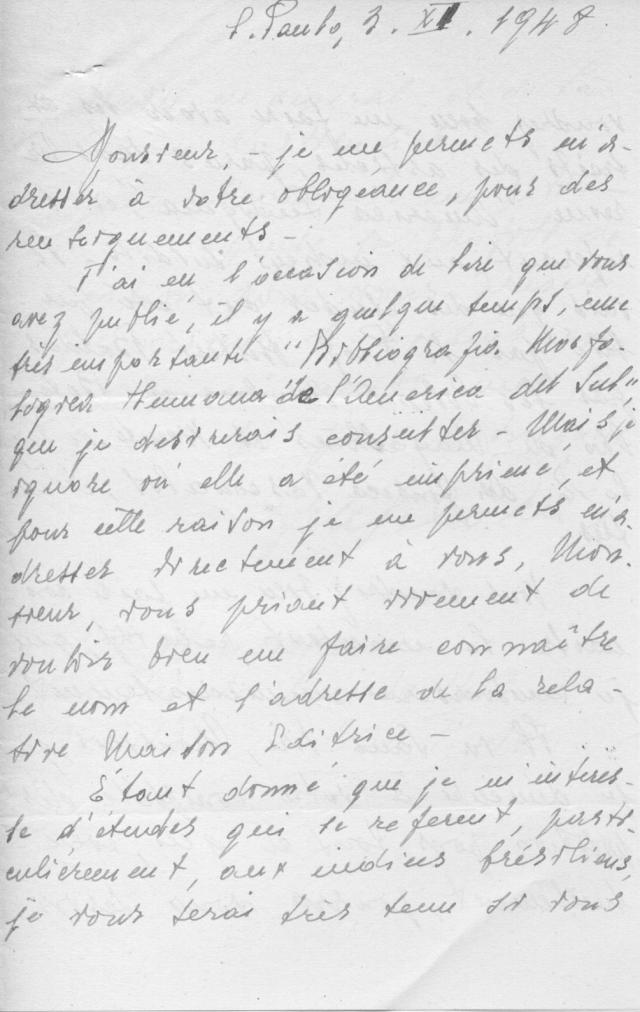 S. Paulo, 3. XI. 1948.
Monsieur – je me permets m'a-
dresser à votre obligeance, pour des
renseignements –
J'ai eu l'occasion de lire que vous
avez publié, il y a quelque temps, une
très importante "Bibliografia Morfo-
logica Humana de l'America del Sul"
que je desirerais consulter – Mais je
ignore où elle a été imprimé, et
pour cette raison je me permets m'a-
dresser directement à vous, Mon-
sieur, vous priant vivement de
vouloir bien me faire connaître
le nom et l'adresse de la rela-
tive Maison Editrice –
Étant donné que je m'interes-
se d'études qui se referent, parti-
culièrement, aux indiens brésiliens,
je vous serai très tenu si vous